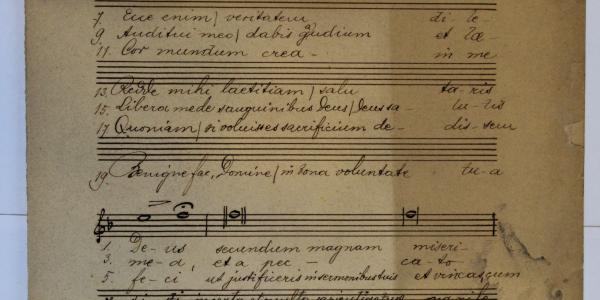 7. Ecce enim/ veritatem di-le-
9. Auditui meo/ dabis gudium et læ-
11. Cor mundum crea- in me
13. Redde mihi laetitiam/ salu ta-ris
15. Libera me de sanguinibus Deus/ Deus sa- lu-tis
17. Quoniam/ si voluisses sacrificium de- dis-sem
19. Benigne fac, Domine/ in bona voluntate tu-a
1. De-us secundum magnam miseri-
3. me-a, et a pec- ca-to
5. fe-ci ut justificeris in sermonibus tuis et vincas cum